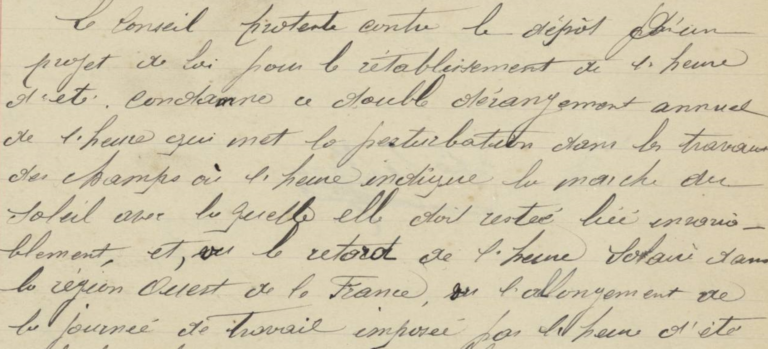 Le Conseil proteste contre le dépôt d'un
projet de loi pour le rétablissement de l'heure
d'été. Condamne ce double dérangement annuel
de l'heure qui met la perturbation dans les travaux
des champs où l'heure indique la marche du
soleil avec laquelle elle doit restée liée invaria-
blement, et, vu le retard de l'heure solaire dans
la région Ouest de la France, vu l'allongement de
la journée de travail imposée par l'heure d'été